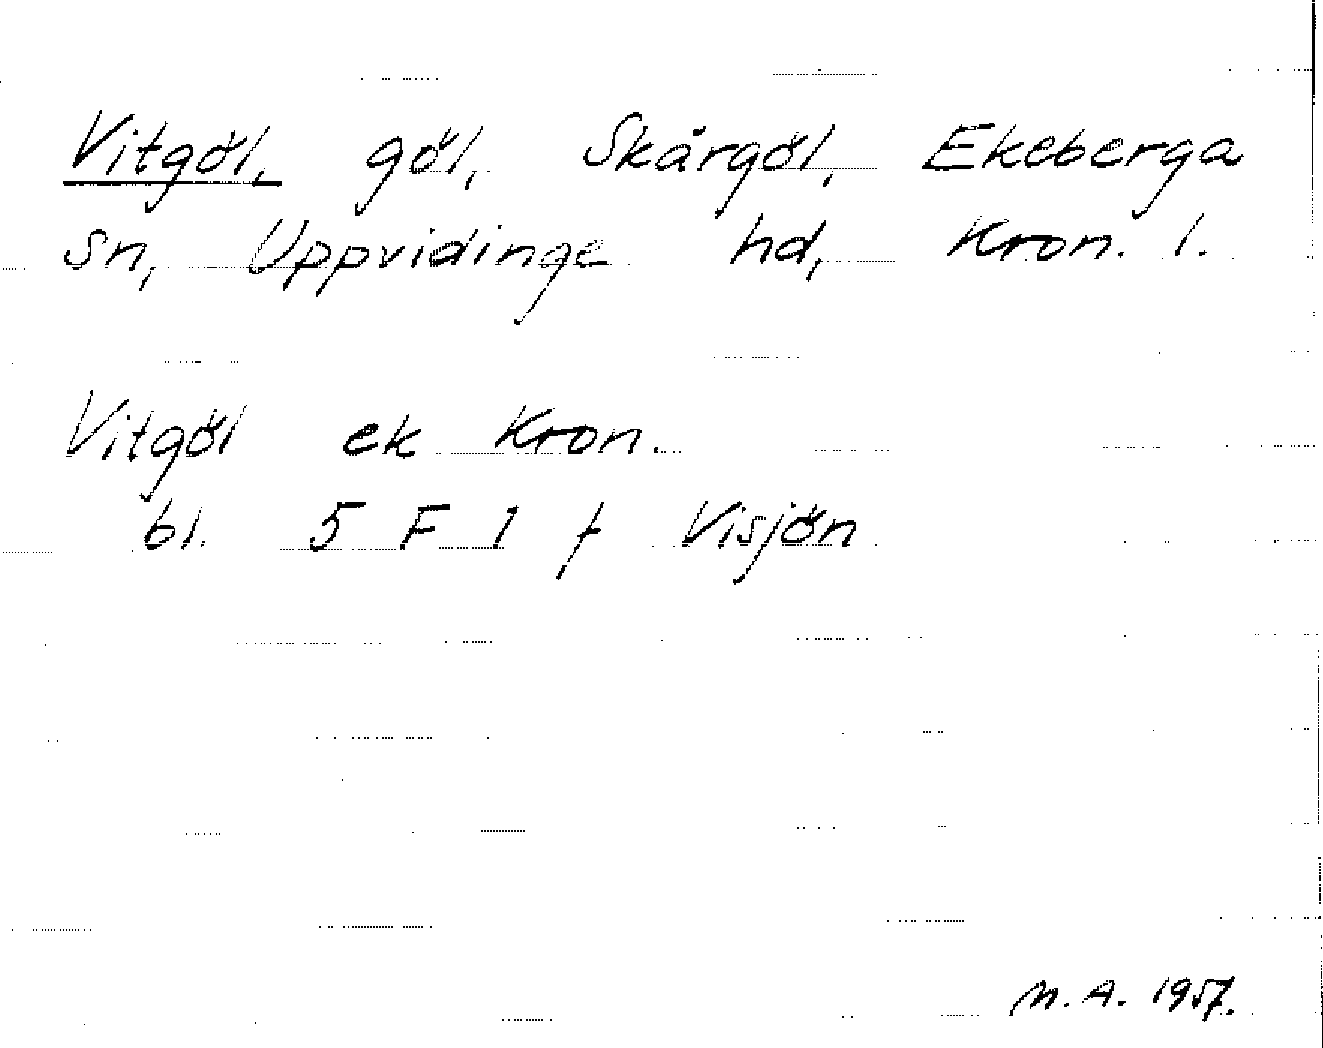 Vitgöl, göl, Skårgöl, Ekeberga
sn, Uppvidinge hd, Kron. l.
Vitgöl ek Kron.
bl. 5 F 1 f Visjön
M. A. 1957.